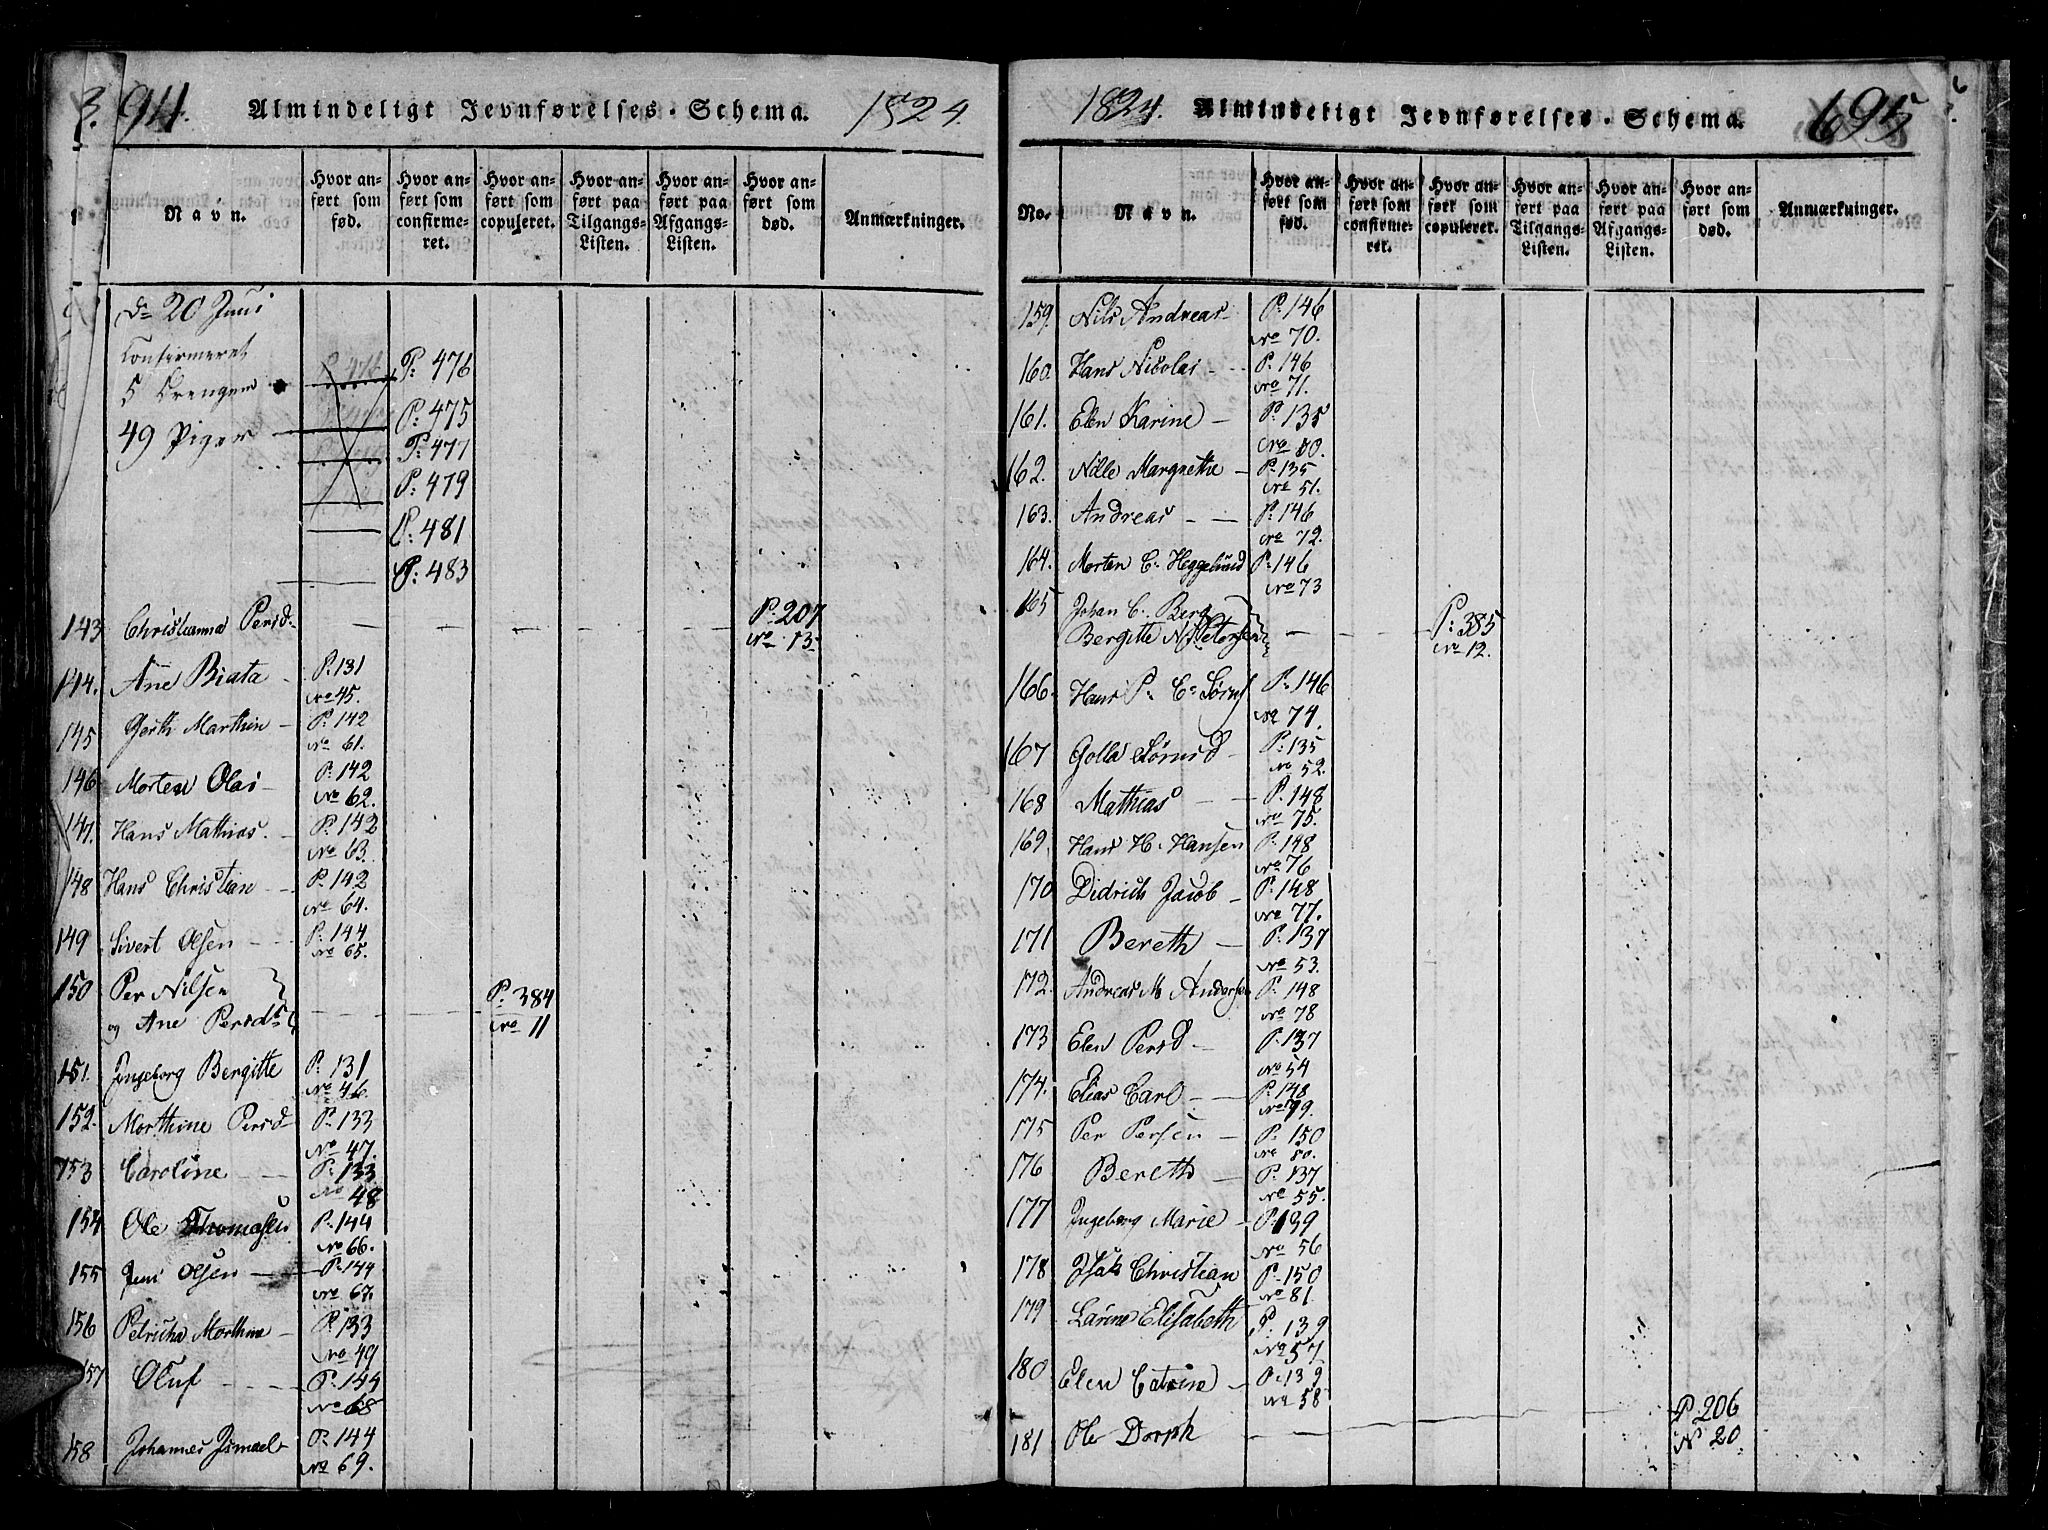 94. Almindeligt Jevnførelses-Schema. 1824.
Navn. Hvor anført som fød. Hvor anført som confirmeret. Hvor anført som copuleret. Hvor anført paa Tilgangs-Listen. Hvor anført paa Afgangs-Listen. Hvor anført som død. Anmærkninger.
20 Juni
Confirmeret
5 Drenger P: 476
P: 475
49 Piger P: 477
P: 479
P: 481
P: 483
143 Christianna Persd P: 207
No 13
144. Ane Biata P. 131
No 45.
145 Gerth Marthin P. 142
No 61.
146 Morten Olai P. 142
No 62.
147. Hans Mathias. P. 142
No 63.
148 Hans Christian P. 142
No 64.
149 Sivert Olsen P. 144
No 65.
150 Per Nilsen
og Ane Persd P. 384
No 11
151. Ingeborg Bergitte P. 131
No 46.
152. Morthine Persd P. 133
No 47.
153 Caroline P. 133
No 48
154 Ole Thomasen P. 144
No 66.
155 Jens Olsen P. 144
No 67.
156 Petricha Morthine P. 133
No 49
157 Oluf P. 144
No 68
158 Johannes Ismael P. 144
No 69.
1824. Almindeligt Jevnførelses-Schema. 695
No. Navn. Hvor anført som fød. Hvor anført som confirmeret. Hvor anført som copuleret. Hvor anført paa Tilgangs-Listen. Hvor anført paa Afgangs-Listen. Hvor anført som død. Anmærkninger.
159. Nils Andreas P. 146
No 70.
160. Hans Nicolai P. 146
No 71.
161. Elen Karine P. 135
No 50.
162. Nille Margrethe P. 135
No 51.
163. Andreas P. 146
No 72.
164. Morten C. Heggelund P. 146
No 73
165 Johan C. Berg
Bergitte N. Petersen P: 385
No 12.
166. Hans P. C. Sørens P. 146
No 74.
167 Golla Sørnsd P. 135
No 52.
168 Mathias P. 148
No 75.
169. Hans H. Hansen P. 148
No 76
170 Didrich Jacob P. 148
No 77.
171 Bereth P. 137
No 53.
172. Andreas M Andersen P. 148
No 78
173 Elen Persd P. 137
No 54
174. Elias Carl P. 148
No 79.
175 Per Persen P. 150
No 80.
176 Bereth P. 137
No 55.
177 Ingeborg Marie P. 139
No 56
178 Isak Christian P. 150
No 81.
179 Larine Elisabeth P. 139
No 57
180 Elen Catrine P. 139
No 58
181 Ole Dorph P. 206
N 20.